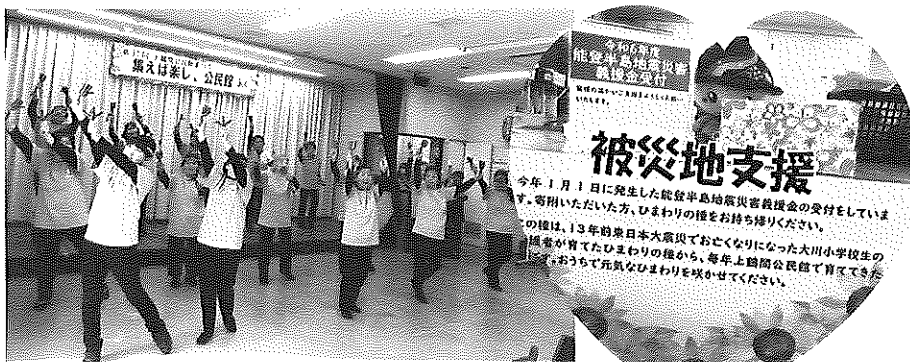 集えば楽し、公民館
令和6年度
能登半島地震災害
義援金受付
被災地支援
今年1月1日に発生した能登半島地震災害義援金の受付をしていま
す。寄附いただいた方、ひまわりの種をお持ち帰りください。
の種は、13年前東日本大震災でお亡くなりになった大川小学校生の
護者が育てたひまわりの種から、毎年上鶴間公民館で育ててきた
です。おうちで元気なひまわりを咲かせてください。